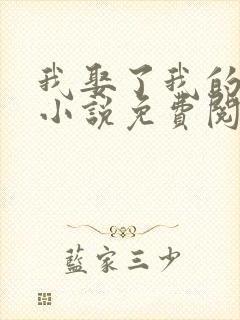 我娶了我的
小説免費閱
藍家三少